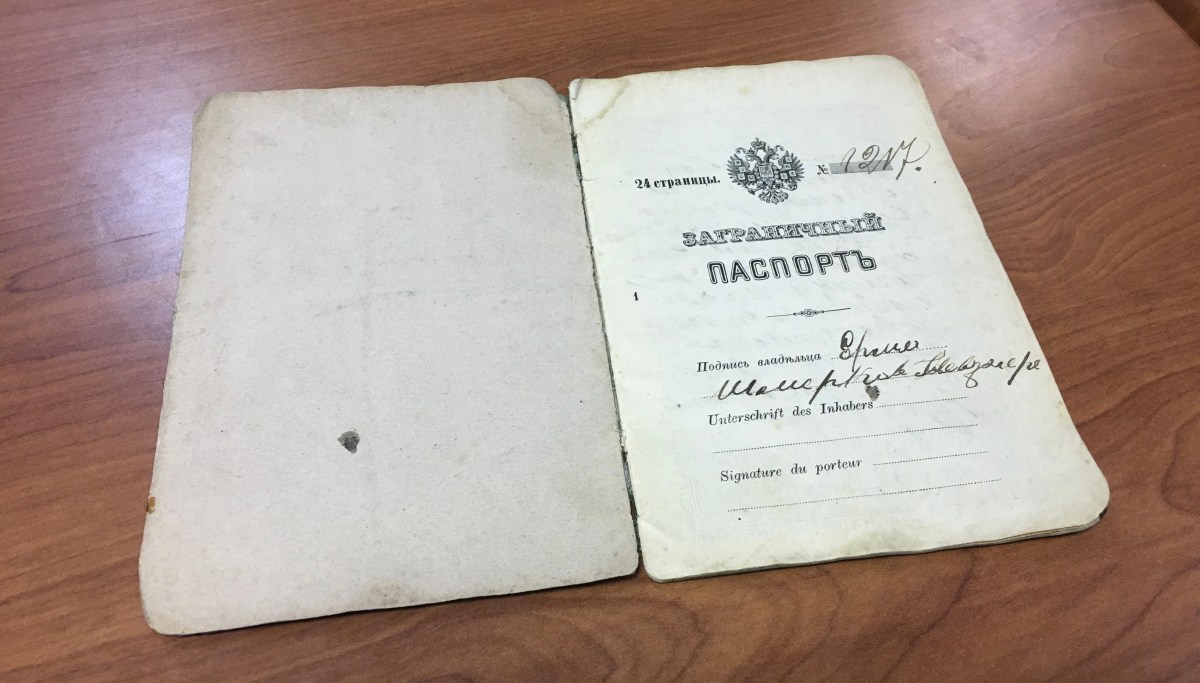 24 страницы. № 1217.
ЗАГРАНИЧНЫЙ
ПАСПОРТЪ
1
Подпись владѣльца
Unterschrift des Inhabers
Signature du porteur